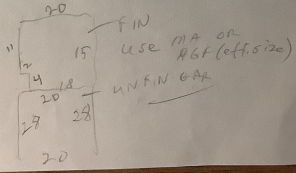 20
FIN
11
15
USE MA OR
AGF (eff. size)
2
4
18
20
UNFIN GAR
28
28
20